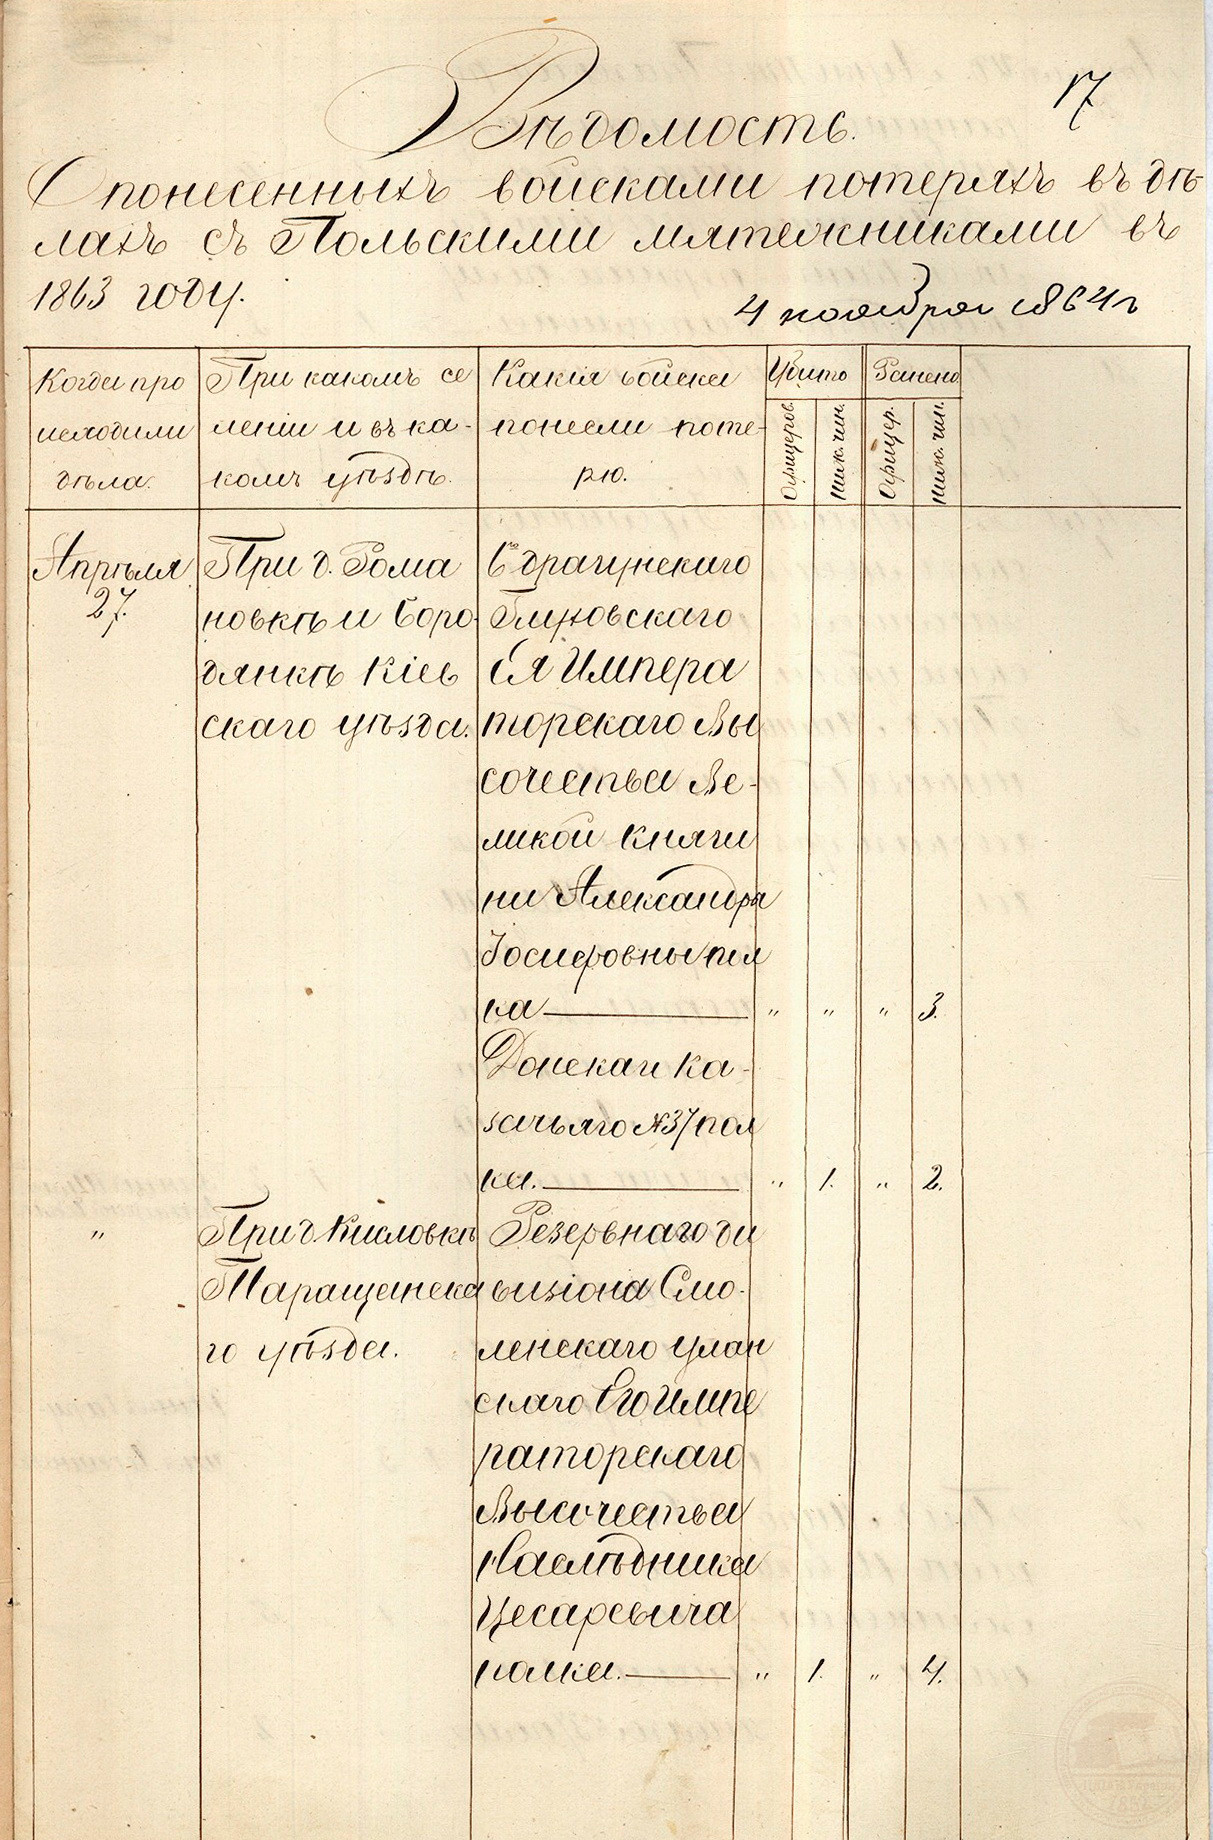 17
Вѣдомость.
О понесенныхъ войсками потеряхъ въ дѣ-
лахъ съ Польскими мятежниками въ
1863 году.
4 ноября 1864 г
Когда про
исходили
дѣла.
При какомъ се
леніи и въ ка-
комъ уѣздѣ.
Какія войска
понесли поте-
рю.
Убито
Ранено
Офицеров.
Ниж. чин.
Офицер.
Ниж. чин.
Апрѣля
27.
При д. Рома
новкѣ и Боро-
дянкѣ Кіев
скаго уѣзда.
6го драгунскаго
Глуховскаго
Ея Импера
торскаго Вы
сочества Ве-
ликой Княги
ни Александры
Іосифовны пол
ка — " " " 3.
Донскаго Ка-
зачьяго №37 пол
ка. — " 1. " 2.
"
При д. Кисловкѣ
Таращанска
го уѣзда.
Резервнаго ди
визіона Смо-
ленскаго улан
скаго Его Импе
раторскаго
Высочества
Наслѣдника
Цесаревича
полка. — " 1. " 4.